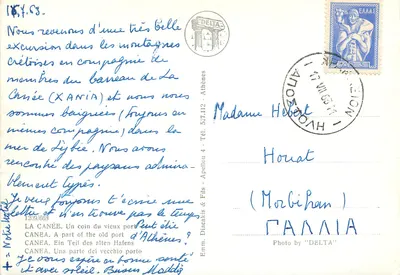 18.7.63
Nous revenons d'une très belle
excursion dans les montagnes
crétoises en compagnie de
membres du barreau de La
Canée (XANIA) et nous nous
sommes baignées (toujours en
mêmes compagnie) dans la
mer de Libye. Nous avons
rencontré des paysans admira-
blement typés.
Je veux toujours t'écrire une
lettre et n'en trouve pas le temps
Peut être
d'Athènes?
Je vous espère en bonne santé
et avec soleil.
LA CANÉE. Un coin du vieux port
CANEA. A part of the old port
CANEA. Ein Teil des alten Hafens
CANEA. Una parte del vecchio porto
Tél. 527.132 Athènes
DELTA
ΕΛΛΑΣ
ΑΠΟΣΤΟΛΗ
Madame
Houat
(Morbihan)
ΓΑΛΛΙΑ
Photo by "DELTA"